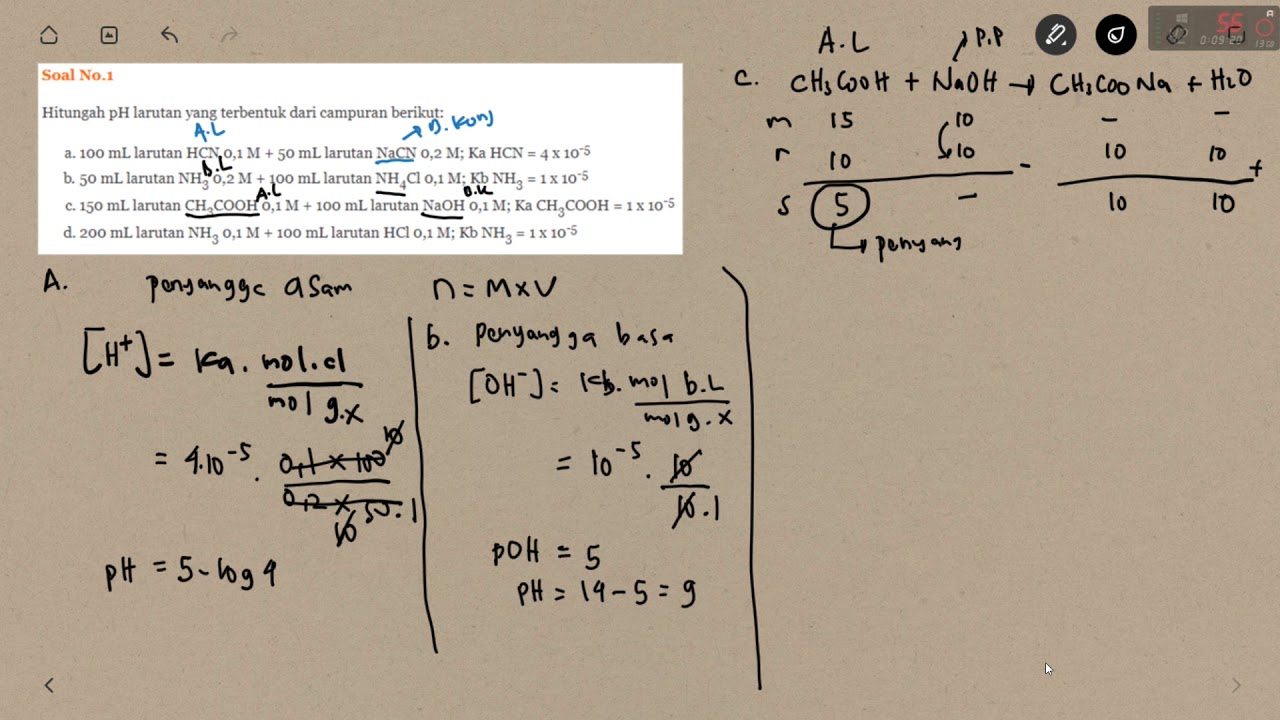 Soal No.1
Hitungah pH larutan yang terbentuk dari campuran berikut:
A.L
B. Konj
a. 100 mL larutan HCN 0,1 M + 50 mL larutan NaCN 0,2 M; Ka HCN = 4 x 10⁻⁵
B.L
b. 50 mL larutan NH₃ 0,2 M + 100 mL larutan NH₄Cl 0,1 M; Kb NH₃ = 1 x 10⁻⁵
A.L
B.K
c. 150 mL larutan CH₃COOH 0,1 M + 100 mL larutan NaOH 0,1 M; Ka CH₃COOH = 1 x 10⁻⁵
d. 200 mL larutan NH₃ 0,1 M + 100 mL larutan HCl 0,1 M; Kb NH₃ = 1 x 10⁻⁵
A. Penyangga asam n = M x V
[H⁺] = Ka . mol.a
mol g.x
= 4.10⁻⁵ . 0,1 x 100 10
0,2 x 50 . 1
10
pH = 5 - log 4
b. Penyangga basa
[OH⁻] = Kb . mol b.L
mol g . x
= 10⁻⁵ . 10
10 . 1
pOH = 5
pH = 14 - 5 = 9
A.L P.P
C. CH₃COOH + NaOH → CH₃COONa + H₂O
m 15 10 - -
r 10 10 - 10 10 +
s 5 - 10 10
penyang
56
0:09:20